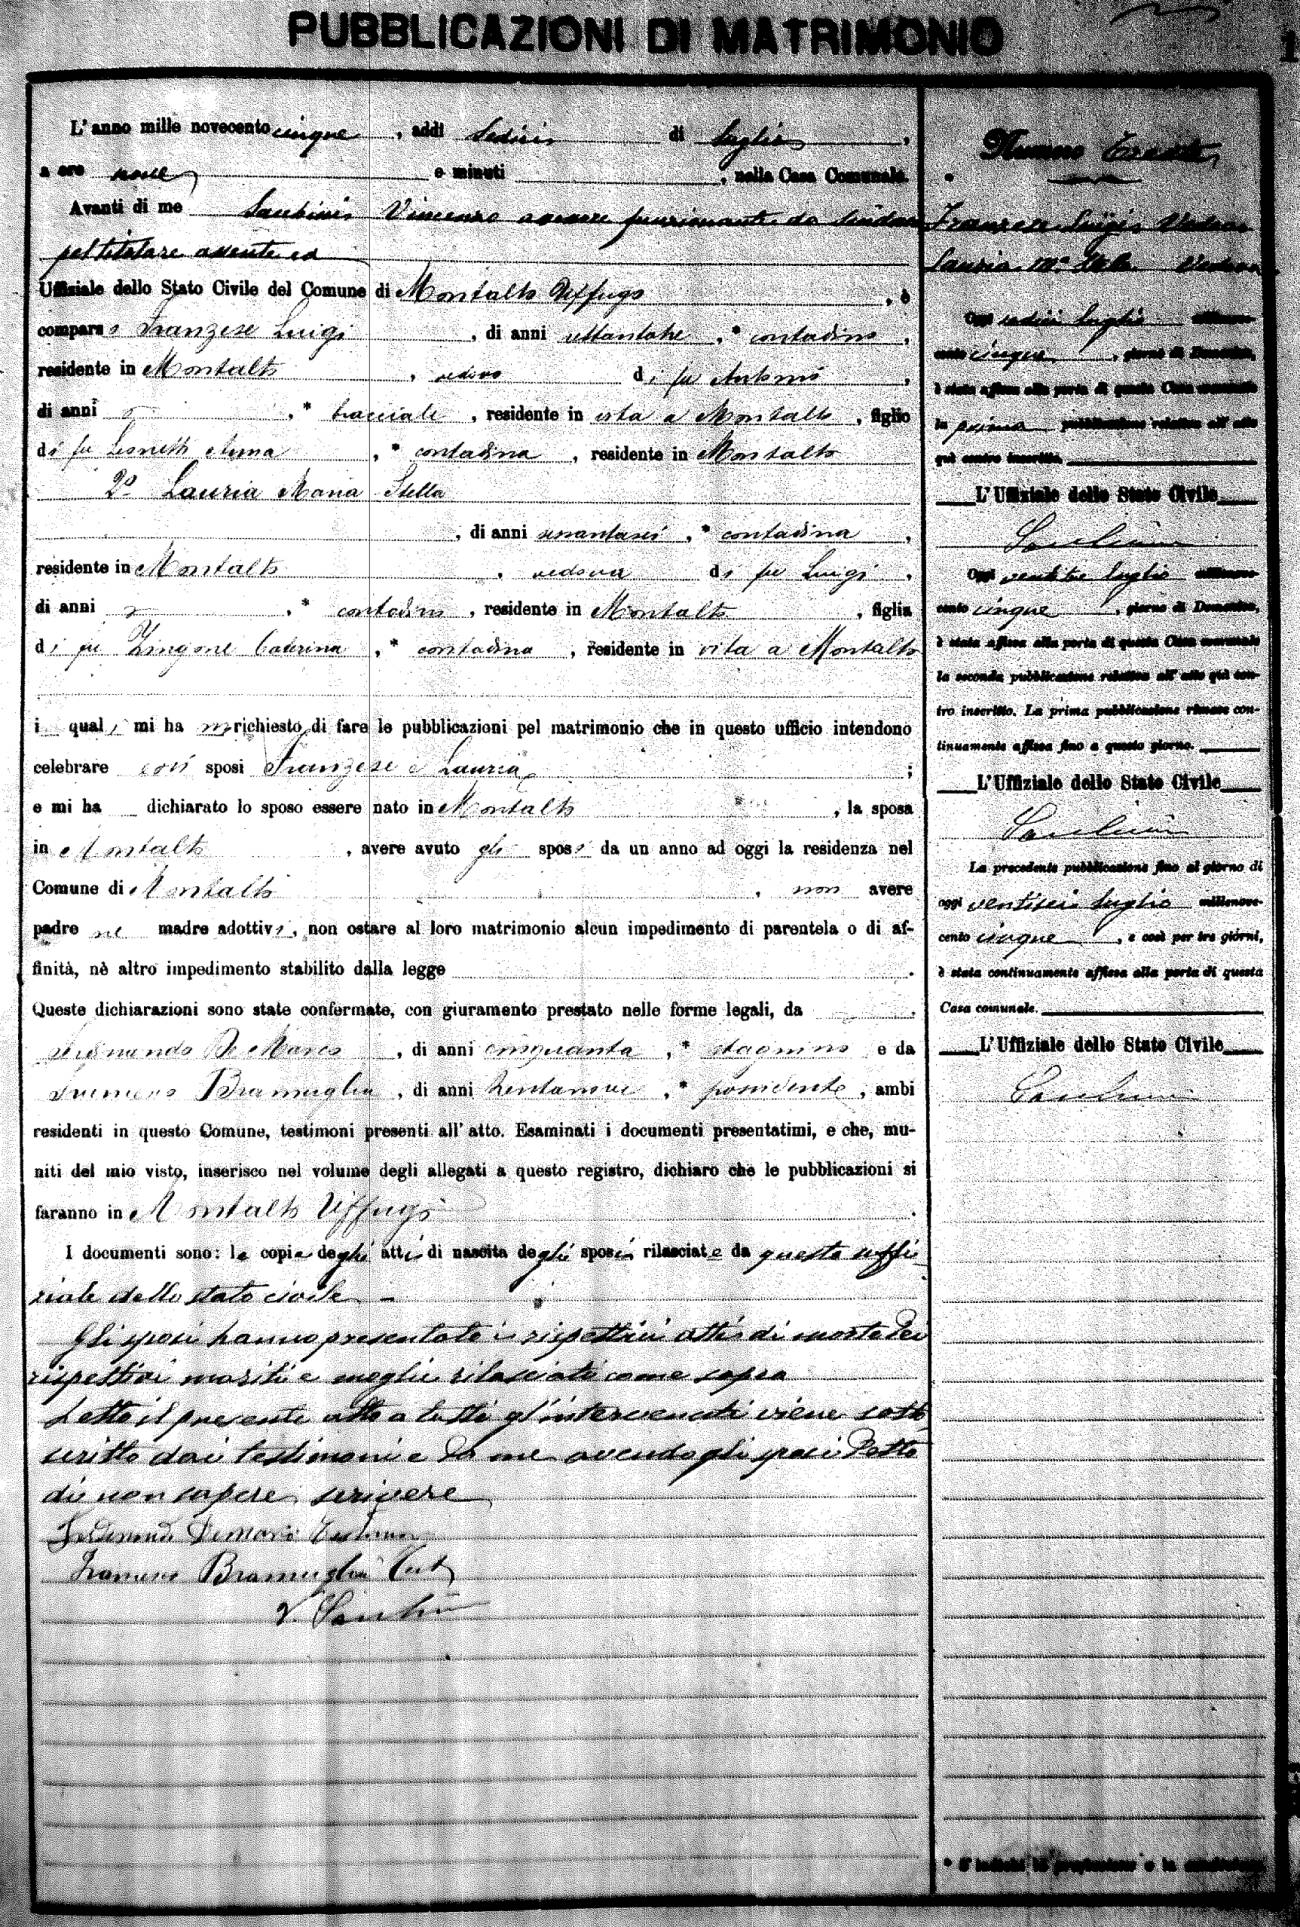 PUBBLICAZIONI DI MATRIMONIO
1
L'anno mille novecento cinque, addì Sedici di Luglio,
a ore nove e minuti , nella Casa Comunale.
Avanti di me Vincenzo assessore funzionante da Sindaco
pel titolare assente ed
Uffiziale dello Stato Civile del Comune di Montalto Uffugo, è
comparso Franzese Luigi, di anni , * contadino,
residente in Montalto, vedovo di fu Antonio,
di anni , * bracciale, residente in vita a Montalto, figlio
di fu Anna, * contadina, residente in Montalto
2º Lauria Maria Stella
, di anni sessantasei, * contadina,
residente in Montalto, vedova di fu Luigi,
di anni , * contadino, residente in Montalto, figlia
di fu Zingone Caterina, * contadina, residente in vita a Montalto
i quali mi ha nno richiesto di fare le pubblicazioni pel matrimonio che in questo ufficio intendono
celebrare così sposi Franzese e Lauria;
e mi ha dichiarato lo sposo essere nato in Montalto, la sposa
in Montalto, avere avuto gli sposi da un anno ad oggi la residenza nel
Comune di Montalto, non avere
padre nè madre adottivi, non ostare al loro matrimonio alcun impedimento di parentela o di af-
finità, nè altro impedimento stabilito dalla legge .
Queste dichiarazioni sono state confermate, con giuramento prestato nelle forme legali, da
Ferdinando De Marco, di anni cinquanta, * stagnino e da
Francesco Bramuglia, di anni trentanove, * possidente, ambi
residenti in questo Comune, testimoni presenti all'atto. Esaminati i documenti presentatimi, e che, mu-
niti del mio visto, inserisco nel volume degli allegati a questo registro, dichiaro che le pubblicazioni si
faranno in Montalto Uffugo.
I documenti sono: le copie degli atti di nascita degli sposi, rilasciate da questo uffi-
ziale dello stato civile
Gli sposi hanno presentato i rispettivi atti di morte dei
rispettivi mariti e moglie rilasciati come sopra
Letto il presente atto a tutti gl'intervenuti viene sotto
scritto dai testimoni e da me avendo gli sposi Detto
di non sapere scrivere
Ferdinando Demarco Testimone
Francesco Bramuglia Test
Numero Trenta
Franzese Luigi Vedovo
Lauria Mª Stella Vedova
Oggi sedici luglio millenove-
cento cinque, giorno di Domenica,
è stata affissa alla porta di questa Casa comunale
la prima pubblicazione relativa all'atto
qui contro inscritto.
L'Uffiziale dello Stato Civile
Oggi ventitre luglio millenove-
cento cinque, giorno di Domenica,
è stata affissa alla porta di questa Casa comunale
la seconda pubblicazione relativa all'atto quì con-
tro inscritto. La prima pubblicazione rimase con-
tinuamente affissa fino a questo giorno.
L'Uffiziale dello Stato Civile
La precedente pubblicazione fino al giorno di
oggi ventisei luglio millenove-
cento cinque, e così per tre giorni,
è stata continuamente affissa alla porta di questa
Casa comunale.
L'Uffiziale dello Stato Civile
* S'indichi la professione o la condizione.